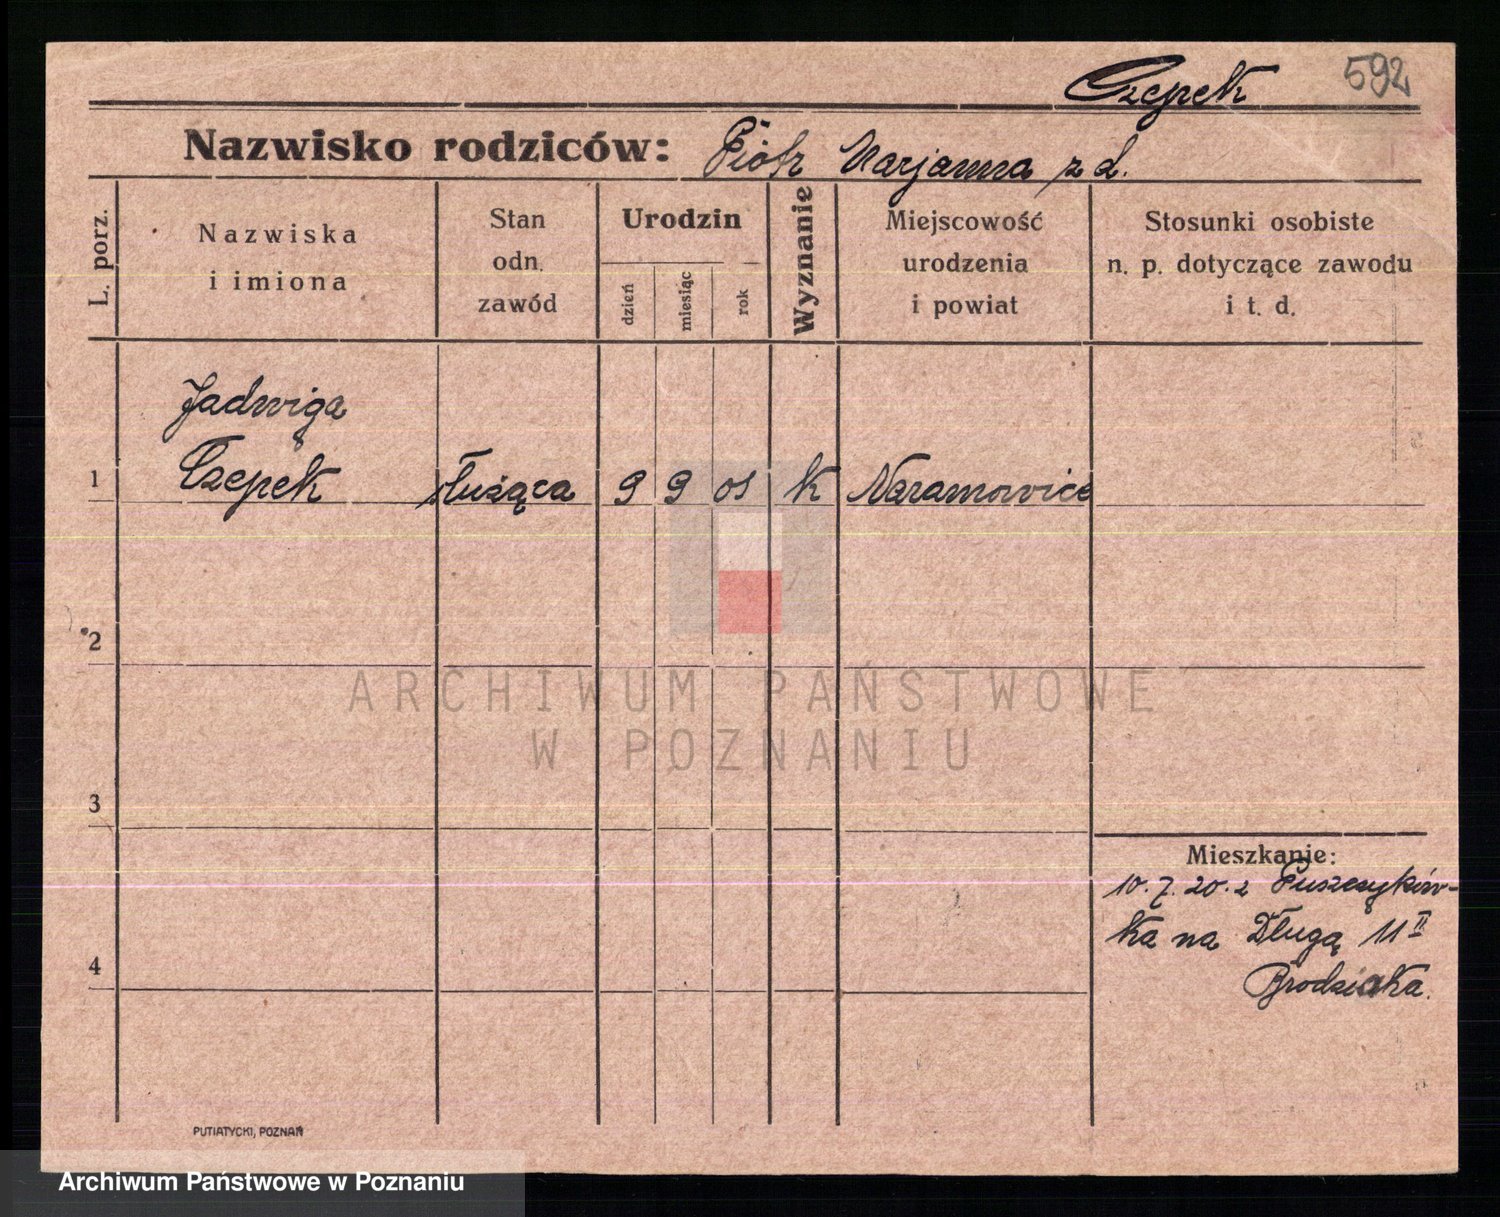 Czepek 592
Nazwisko rodziców: Piotr Marjanna z d.
L. porz.
Nazwiska
i imiona
Stan
odn.
zawód
Urodzin
dzień
miesiąc
rok
Wyznanie
Miejscowość
urodzenia
i powiat
Stosunki osobiste
n. p. dotyczące zawodu
i t. d.
Jadwiga
1 Czepek służąca 9 9 01 k Naramowice
2
ARCHIWUM PAŃSTWOWE
W POZNANIU
3
Mieszkanie:
10.7.20. z Puszczyków-
ka na Długą 11 II
4 Brodziaka.
PUTIATYCKI, POZNAŃ
Archiwum Państwowe w Poznaniu